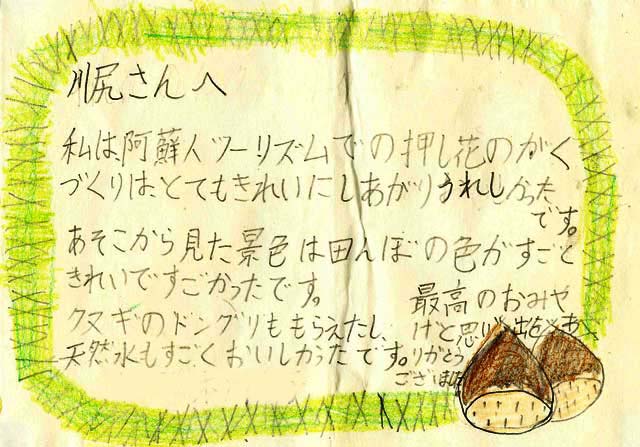 川尻さんへ
私は、阿蘇人ツーリズムでの押し花のがく
づくりは、とてもきれいにしあがりうれしかった
です。
あそこから見た景色は田んぼの色がすごく
きれいですごかったです。
クヌギのドングリももらえたし、
天然水もすごくおいしかったです。
最高のおみや
げと思い出を あ
りがとう
ござ